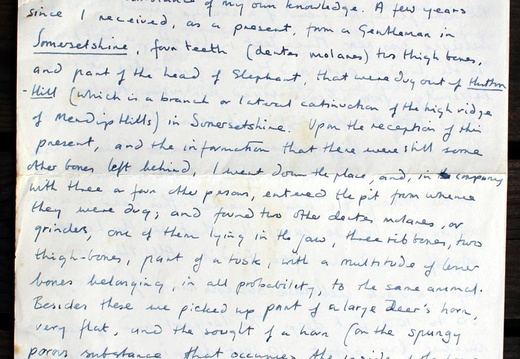 instance of my own knowledge. A few years
since I received, as a present, from a Gentleman in
Somersetshire, four teeth (dentes molares) two thigh bones,
and part of the head of Elephant, that were dug out of Hutton
-Hill (which is a branch or lateral continuation of the high ridge
of Mendip Hills) in Somersetshire. Upon the reception of this
present, and the information that there were still some
other bones left behind, I went down the place, and, in company
with three or four other persons, entered the pit from whence
they were dug; and found two other dentes molares, or
grinders, one of them lying in the jaw, three rib bones, two
thigh-bones, part of a tusk, with a multitude of lesser
bones belonging, in all probability, to the same animal.
Besides these we picked up part of a large Deer's horn,
very flat, and the sought of a horn (or the spungy
porous substance that occupies the inside